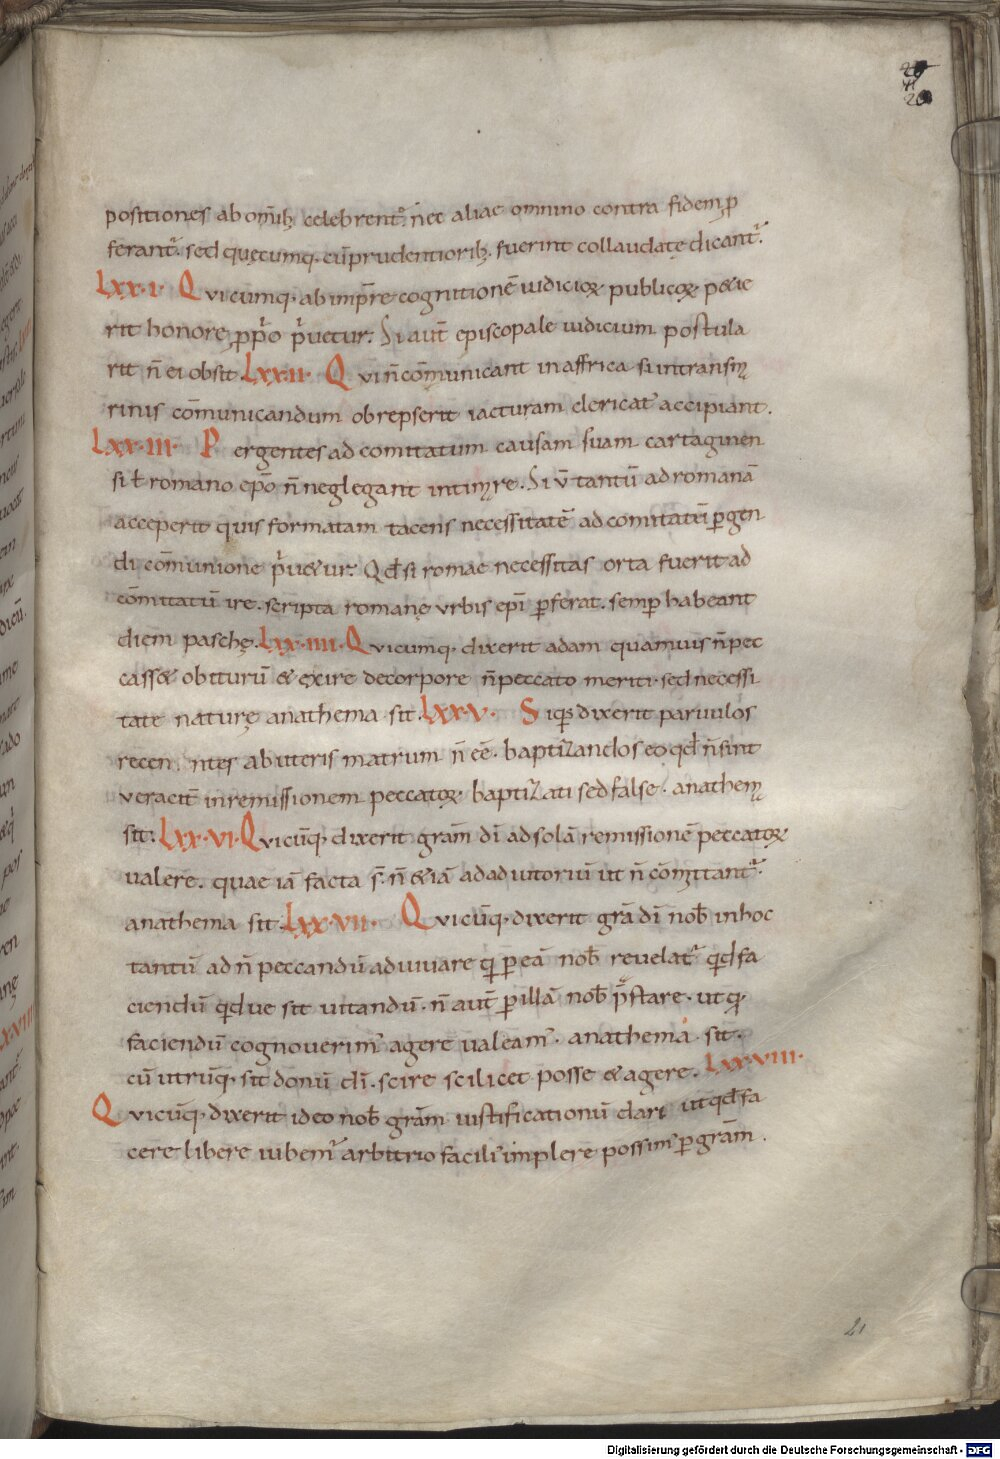 positiones ab om̄ibꝫ celebrent᷑. nec aliae omnino contra fidem ꝓ
ferant᷑. sed quęcumq; cū prudentioribꝫ. fuerint collaudatę dicant᷑.
Lxx.i. Qvicumq; ab imp̄re cognitionē iudicioꝝ publicoꝝ petie
rit honore ꝓp̓o p̓uetur. Si aut̄ episcopale iudicium postula
rit n̄ ei obsit. Lxx.ii. Qvi n̄ cōmunicant in affrica si intransm
rinis cōmunicandum obrepserit iacturam clericat᾽ accipiant.
Lxx.iii. Pergentes ad comitatum causam suam cartaginen
si ł romano ep̄o n̄ neglegant intimre. Si v̄ tantū ad romanā
acceperit quis formatam tacens necessitatē ad comitatū ꝑgen
di cōmunione p̓uetur. Qd̄ si romae necessitas orta fuerit ad
cōmitatū ire. scripta romanę vrbis ep̄i ꝑferat. semꝑ habeant
diem paschę. Lxx.iiii. Qvicumq; dixerit adam quamuis n̄ pec
casset obiturū et exire decorpore n̄ peccato meriti. sed necessi
tate naturę anathema sit. Lxx.v. Siqs dixerit paruulos
recen ntes ab uteris matrum n̄ eē. baptizandos eo qd̄ n̄ sint
veracit̄ in remissionem peccatoꝝ. baptizati sed false. anathem
sit. Lxx.vi. Qvicūq; dixerit gram̄ dī ad solā remissionē peccatoꝝ
ualere. quae iā facta s̄. n̄ etiā ad adiutoriū ut n̄ cōmittant᷑.
anathema sit. Lxx.vii. Qvicūq; dixerit grā dī nob̄ in hoc
tantū ad n̄ peccandū adiuuare q ꝑ eā nob̄ revelat᷑ qd fa
ciendū qd ue sit uitandū. n̄ aut̄ ꝑ illā nob̄ p̄stare. ut q
faciendū cognouerim᾽ agere ualeam᾽. anathema sit.
cū utrūq; sit donū dī. scire scilicet posse et agere. Lxx.viii.
Qvicūq; dixerit ideo nob̄ grām iustificationū dari ut qd fa
cere libere iubem᷑ arbitrio facili᾽ implere possim᾽ ꝑ grām.
21
Digitalisierung gefördert durch die Deutsche Forschungsgemeinschaft - DFG